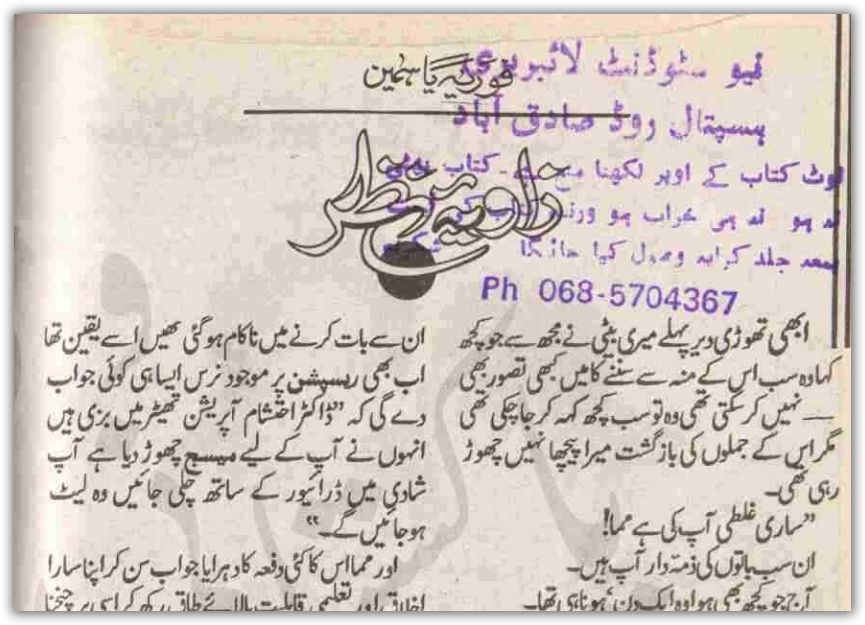 فوزیہ یاسمین
زاویہ نظر
نیو سٹوڈنٹ لائبریری
ہسپتال روڈ صادق آباد
نوٹ کتاب کے اوپر لکھنا منع ہے۔ کتاب
نہ ہو نہ ہی خراب ہو ورنہ کتاب کی
بمعہ جلد کرایہ وصول کیا جائیگا شکریہ
Ph 068-5704367
ابھی تھوڑی دیر پہلے میری بیٹی نے مجھ سے جو کچھ
کہا وہ سب اس کے منہ سے سننے کا میں کبھی تصور بھی
نہیں کر سکتی تھی وہ تو سب کچھ کہہ کر جا چکی تھی
مگر اس کے جملوں کی بازگشت میرا پیچھا نہیں چھوڑ
رہی تھی۔
”ساری غلطی آپ کی ہے مما!
ان سب باتوں کی ذمہ دار آپ ہیں۔
آج جو کچھ بھی ہوا وہ ایک دن ہونا ہی تھا۔
ان سے بات کرنے میں ناکام ہو گئی تھیں اسے یقین تھا
اب بھی ریسپشن پر موجود نرس ایسا ہی کوئی جواب
دے گی کہ ”ڈاکٹر احتشام آپریشن تھیٹر میں بزی ہیں
انہوں نے آپ کے لیے میسج چھوڑ دیا ہے آپ
شادی میں ڈرائیور کے ساتھ چلی جائیں وہ لیٹ
ہو جائیں گے۔“
اور مما اس کا کئی دفعہ کا دہرایا جواب سن کر اپنا سارا
اخلاق اور تعلیمی قابلیت بالائے طاق رکھ کر اسی پر چیخنا